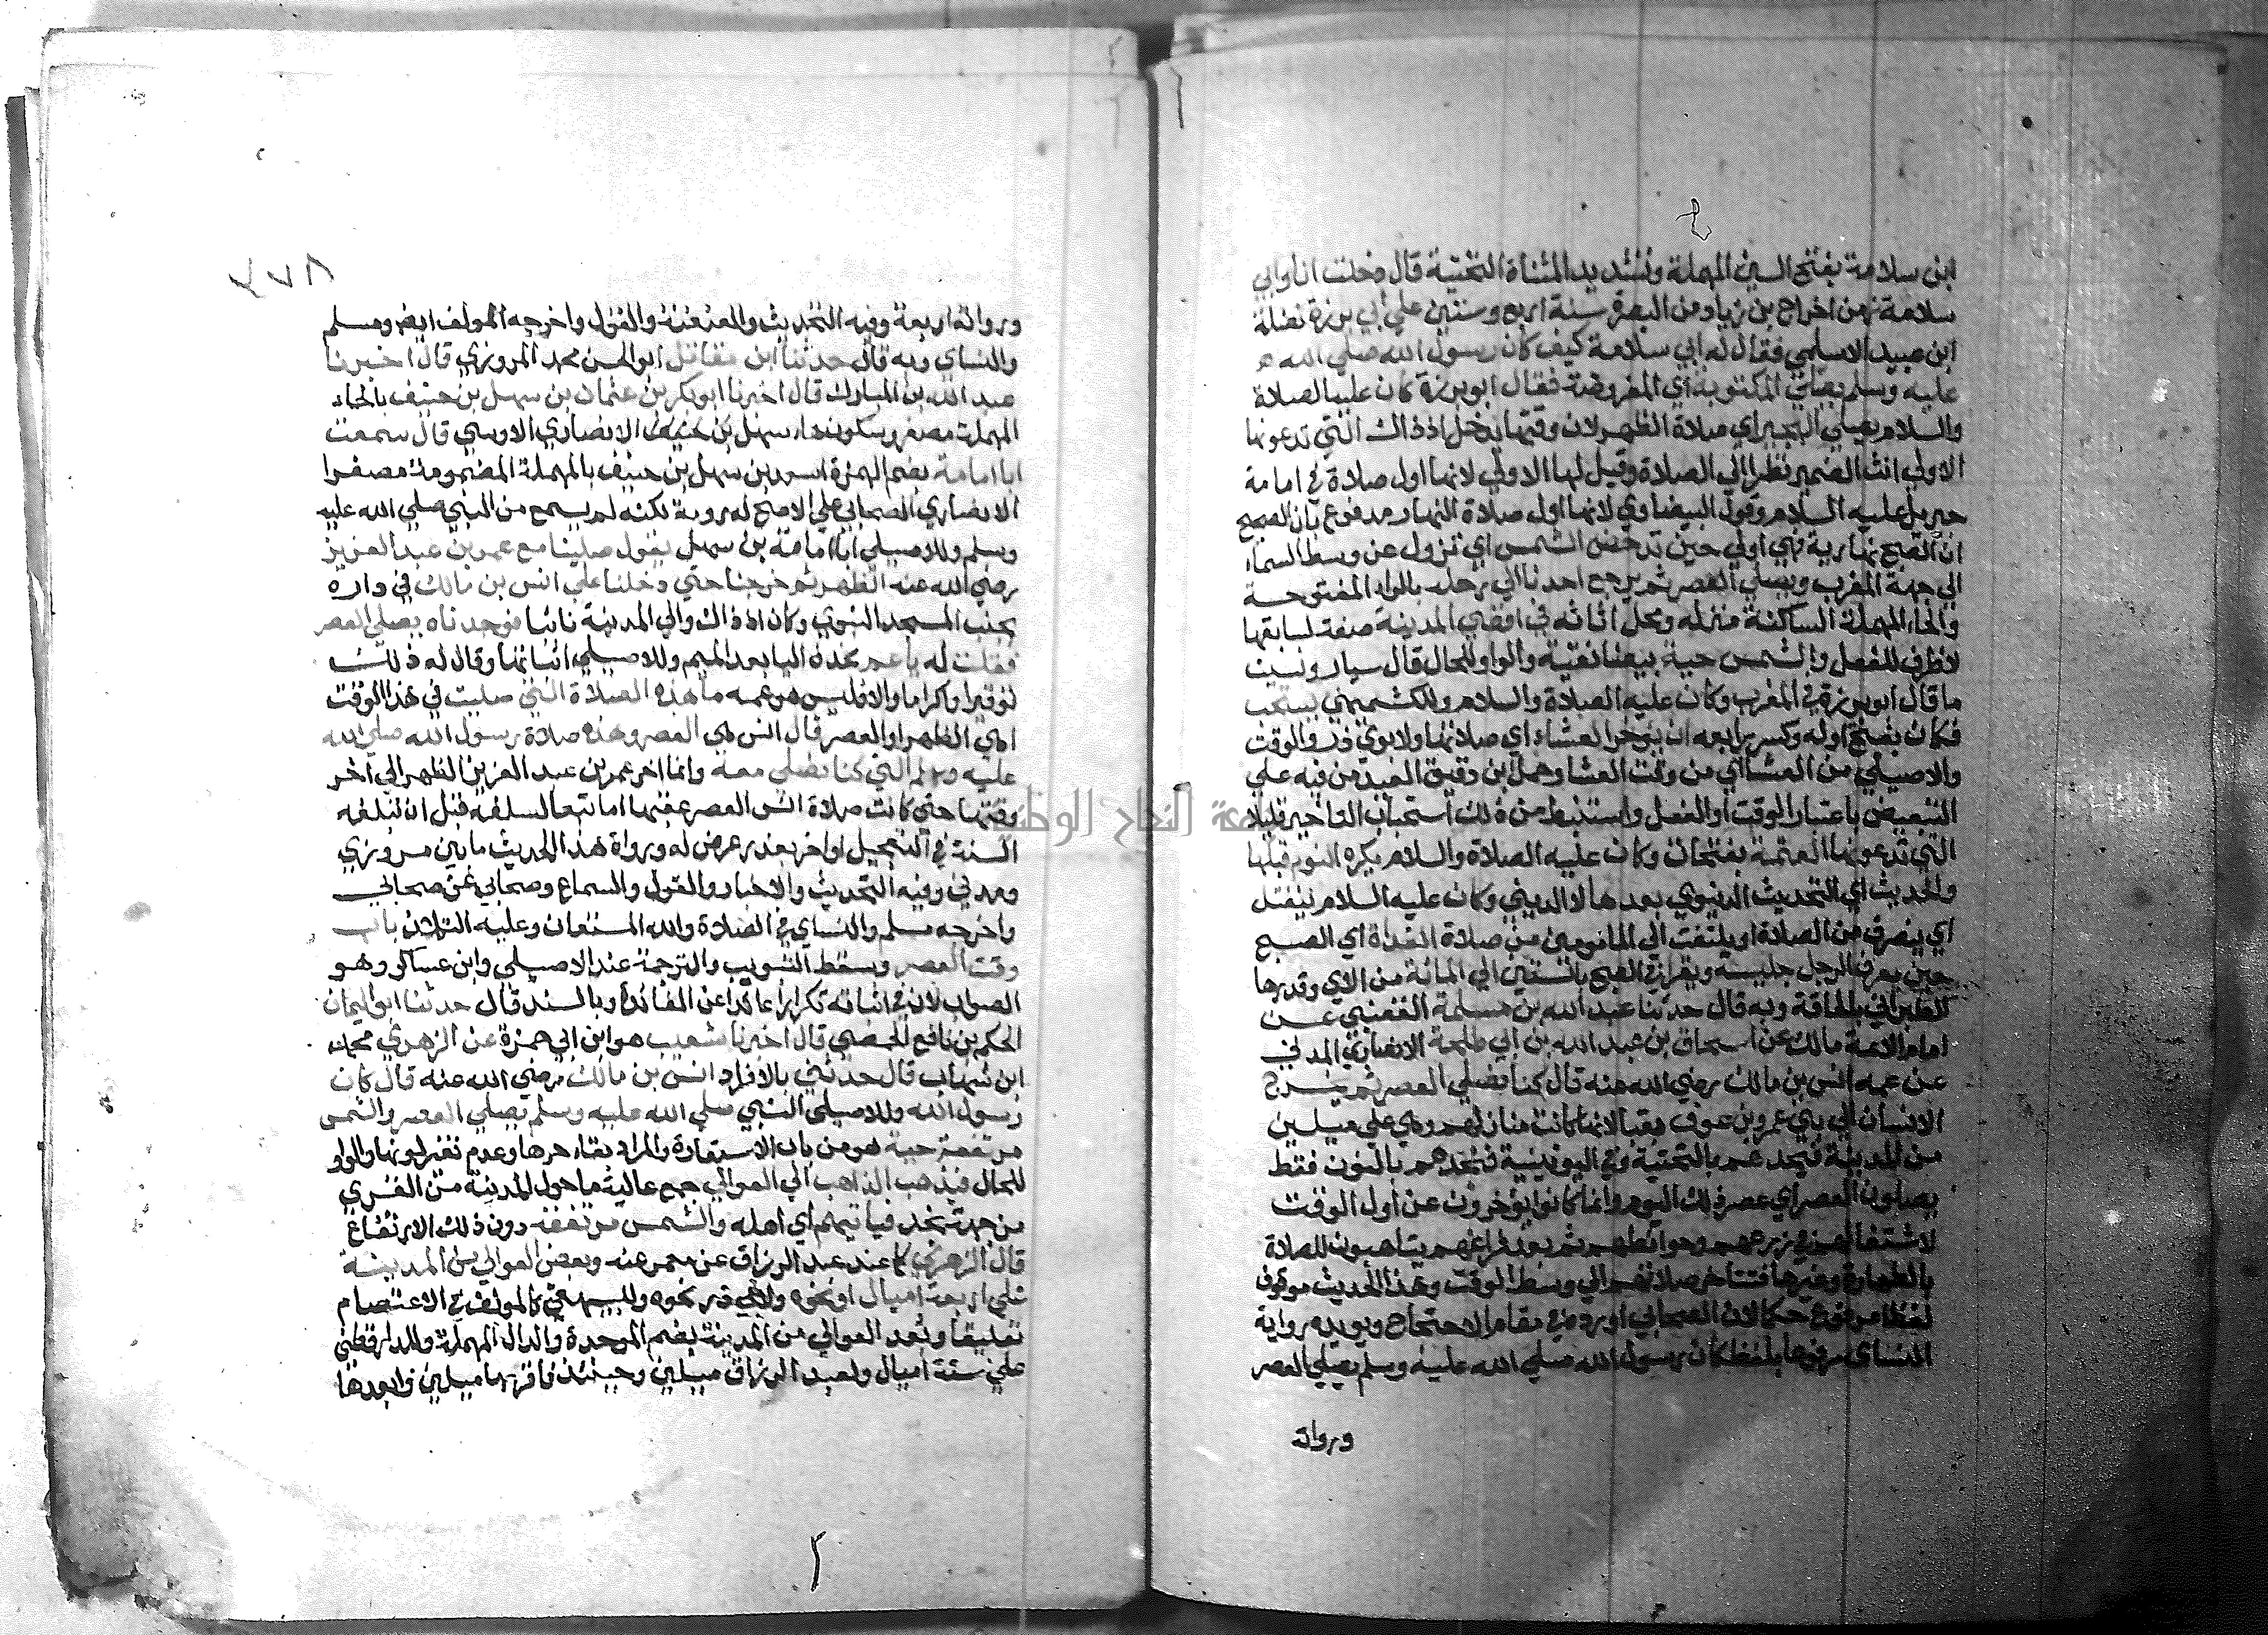 ابن سلامة بفتح السين المهملة وتشديد المثناة التحتية قال دخلت انا وابي
سلامة زمن اخراج بن زياد من البصرة سنة اربع وستين علي ابي برزة نضلة
ابن عبيد الاسلمي فقال له ابي سلامة كيف كان رسول الله صلي الله
عليه وسلم يصلي المكتوبة اي المفروضة فقال ابو برزة كان عليه الصلاة
والسلام يصلي الهجير اي صلاة الظهر لان وقتها يدخل اذ ذاك التي تدعونها
الاولي انث الضمير نظرا الي الصلاة وقيل لها الاولي لانها اول صلاة في امامة
جبريل عليه السلام وقول البيضاوي لانها اول صلاة النهار مدفوع بان الصحيح
ان الصبح نهارية فهي اولي حين تدحض الشمس اي تزول عن وسط السماء
الي جهة المغرب ويصلي العصر ثم يرجع احدنا الي رحله بالراء المفتوحة
والحاء المهملة الساكنة منزله ومحل اثاثه في اقصي المدينة صفة لسابقها
لا ظرف للفعل والشمس حية بيضا نقية والواو للحال قال سيار ونسيت
ما قال ابو برزة في المغرب وكان عليه الصلاة والسلام وللكشميهني يستحب
فكان بفتح اوله وكسر رابعه ان يؤخر العشاء اي صلاتها ولابوي ذر والوقت
والاصيلي من العشا اي من وقت العشا وحمل ابن دقيق العيد من فيه علي
التبعيض باعتبار الوقت او الفعل واستنبط من ذلك استحباب التاخير قليلا
التي تدعونها العتمة بفتحات وكان عليه الصلاة والسلام يكره النوم قبلها
والحديث اي التحديث الدنيوي بعدها لا الديني وكان عليه السلام ينفتل
اي ينصرف من الصلاة او يلتفت الي المامومين من صلاة الغداة اي الصبح
حين يعرف الرجل جليسه ويقرا في الصبح بالستين الي المائة من الاي وقدرها
الطبراني بالحاقة وبه قال حدثنا عبد الله بن مسلمة القعنبي عن
امام الايمة مالك عن اسحاق بن عبد الله بن ابي طلحة الانصاري المدني
عن عمه انس بن مالك رضي الله عنه قال كنا نصلي العصر ثم يخرج
الانسان الي بني عمرو بن عوف بقبا لانها كانت منازلهم وهي علي ميلين
من المدينة فيجدهم بالتحتية وفي اليونينية فنجدهم بالنون فقط
يصلون العصر اي عصر ذلك اليوم وانما كانوا يؤخرون عن اول الوقت
لاشتغالهم في زرعهم وحوائطهم ثم بعد فراغهم يتاهبون للصلاة
بالطهارة وغيرها فتتاخر صلاتهم الي وسط الوقت وهذا الحديث موقوف
لفظا مرفوع حكما لان الصحابي اورده في مقام الاحتجاج ويويده رواية
النساي مرفوعا بلفظ كان رسول الله صلي الله عليه وسلم يصلي العصر
ورواته
٢٧٨
ورواته اربعة وفيه التحديث والعنعنة والقول واخرجه المولف ايضا ومسلم
والنساي وبه قال حدثنا ابن مقاتل ابو الحسن محمد المروزي قال اخبرنا
عبد الله بن المبارك قال اخبرنا ابو بكر بن عثمان بن سهل بن حنيف بالحاء
المهملة مصغر وسكون هاء سهل بن حنيف الانصاري الاوسي قال سمعت
ابا امامة بضم الهمزة اسعد بن سهل بن حنيف بالمهملة المضمومة مصغرا
الانصاري الصحابي علي الاصح له روية لكنه لم يسمع من النبي صلي الله عليه
وسلم وللاصيلي ابا امامة بن سهل يقول صلينا مع عمر بن عبد العزيز
رضي الله عنه الظهر ثم خرجنا حتي دخلنا علي انس بن مالك في داره
بجنب المسجد النبوي وكان اذ ذاك والي المدينة نائبا فوجدناه يصلي العصر
فقلت له يا عم بحذف اليا بعد الميم وللاصيلي اثباتها وقال له ذلك
توقيرا واكراما والا فليس هو عمه ما هذه الصلاة التي صليت في هذا الوقت
اهي الظهر او العصر قال انس هي العصر وهذه صلاة رسول الله صلي الله
عليه وسلم التي كنا نصلي معه وانما اخر عمر بن عبد العزيز الظهر الي اخر
وقتها حتي كانت صلاة انس العصر عقبها اما تبعا لسلفه قبل ان تبلغه
السنة في التعجيل او اخر لعذر عرض له ورواة هذا الحديث ما بين مروزي
ومدني وفيه التحديث والاخبار والقول والسماع وصحابي عن صحابي
واخرجه مسلم والنساي في الصلاة والله المستعان وعليه التكلان باب
وقت العصر وسقط التبويب والترجمة عند الاصيلي وابن عساكر وهو
الصواب لان في اثباته تكرارا عاريا عن الفائدة وبالسند قال حدثنا ابو اليمان
الحكم بن نافع الحمصي قال اخبرنا شعيب هو ابن ابي حمزة عن الزهري محمد
ابن شهاب قال حدثني بالافراد انس بن مالك رضي الله عنه قال كان
رسول الله وللاصيلي النبي صلي الله عليه وسلم يصلي العصر والشمس
مرتفعة حية هو من باب الاستعارة والمراد بقاء حرها وعدم تغير لونها والواو
للحال فيذهب الذاهب الي العوالي جمع عالية ما حول المدينة من القري
من جهة نجد فياتيهم اي اهله والشمس مرتفعة دون ذلك الارتفاع
قال الزهري كما عند عبد الرزاق عن معمر عنه وبعض العوالي من المدينة
علي اربعة اميال او نحوه ولابي ذر نحوه وللبيهقي كالمولف في الاعتصام
تعليقا وبعد العوالي من المدينة بضم الموحدة والدال المهملة وللدارقطني
علي ستة اميال ولعبد الرزاق ميلين وحينئذ فاقربها ميلين وابعدها